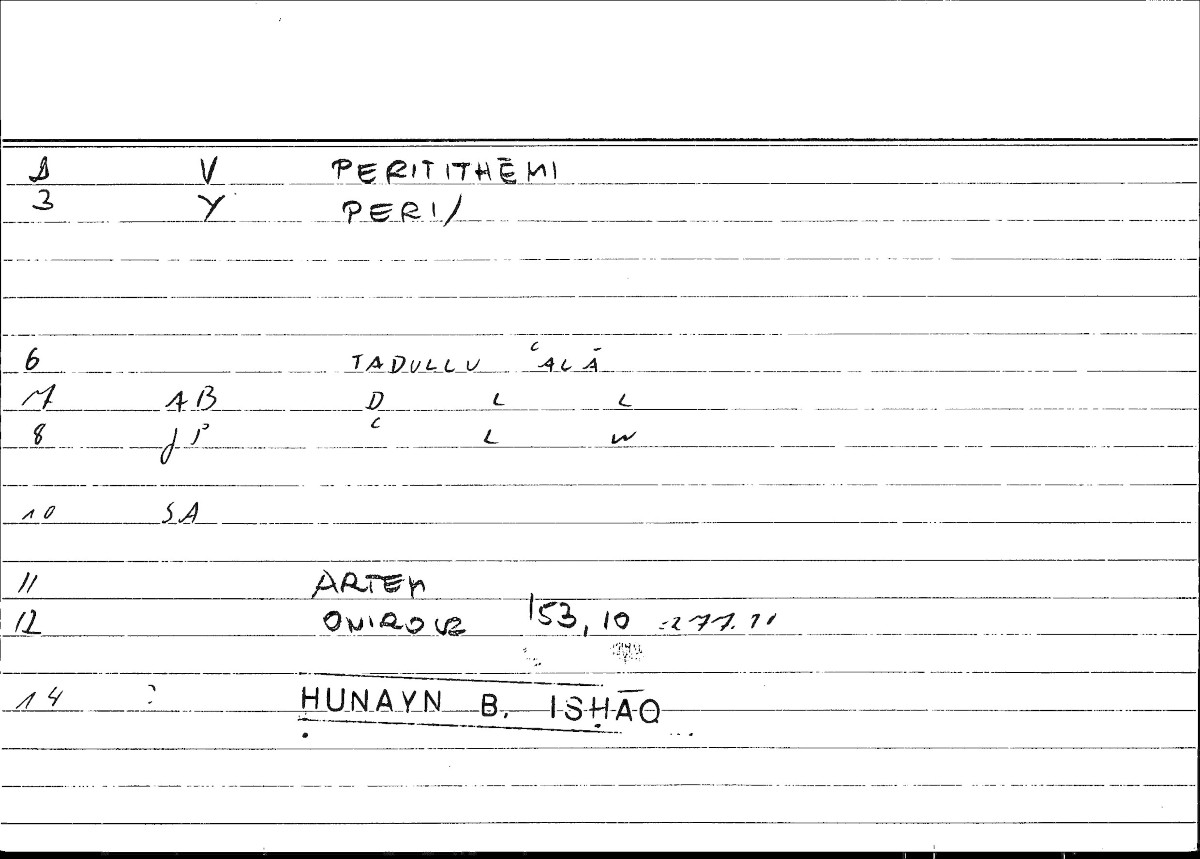 1 V PERITITHĒMI
3 Y PERI/
6 TADULLU ʿALĀ
7 AB D L L
8 JP ʿ L W
10 SA
11 ARTEM
12 ONIROCR 153, 10 = 277.11
14 : ḤUNAYN B. ISḤĀQ